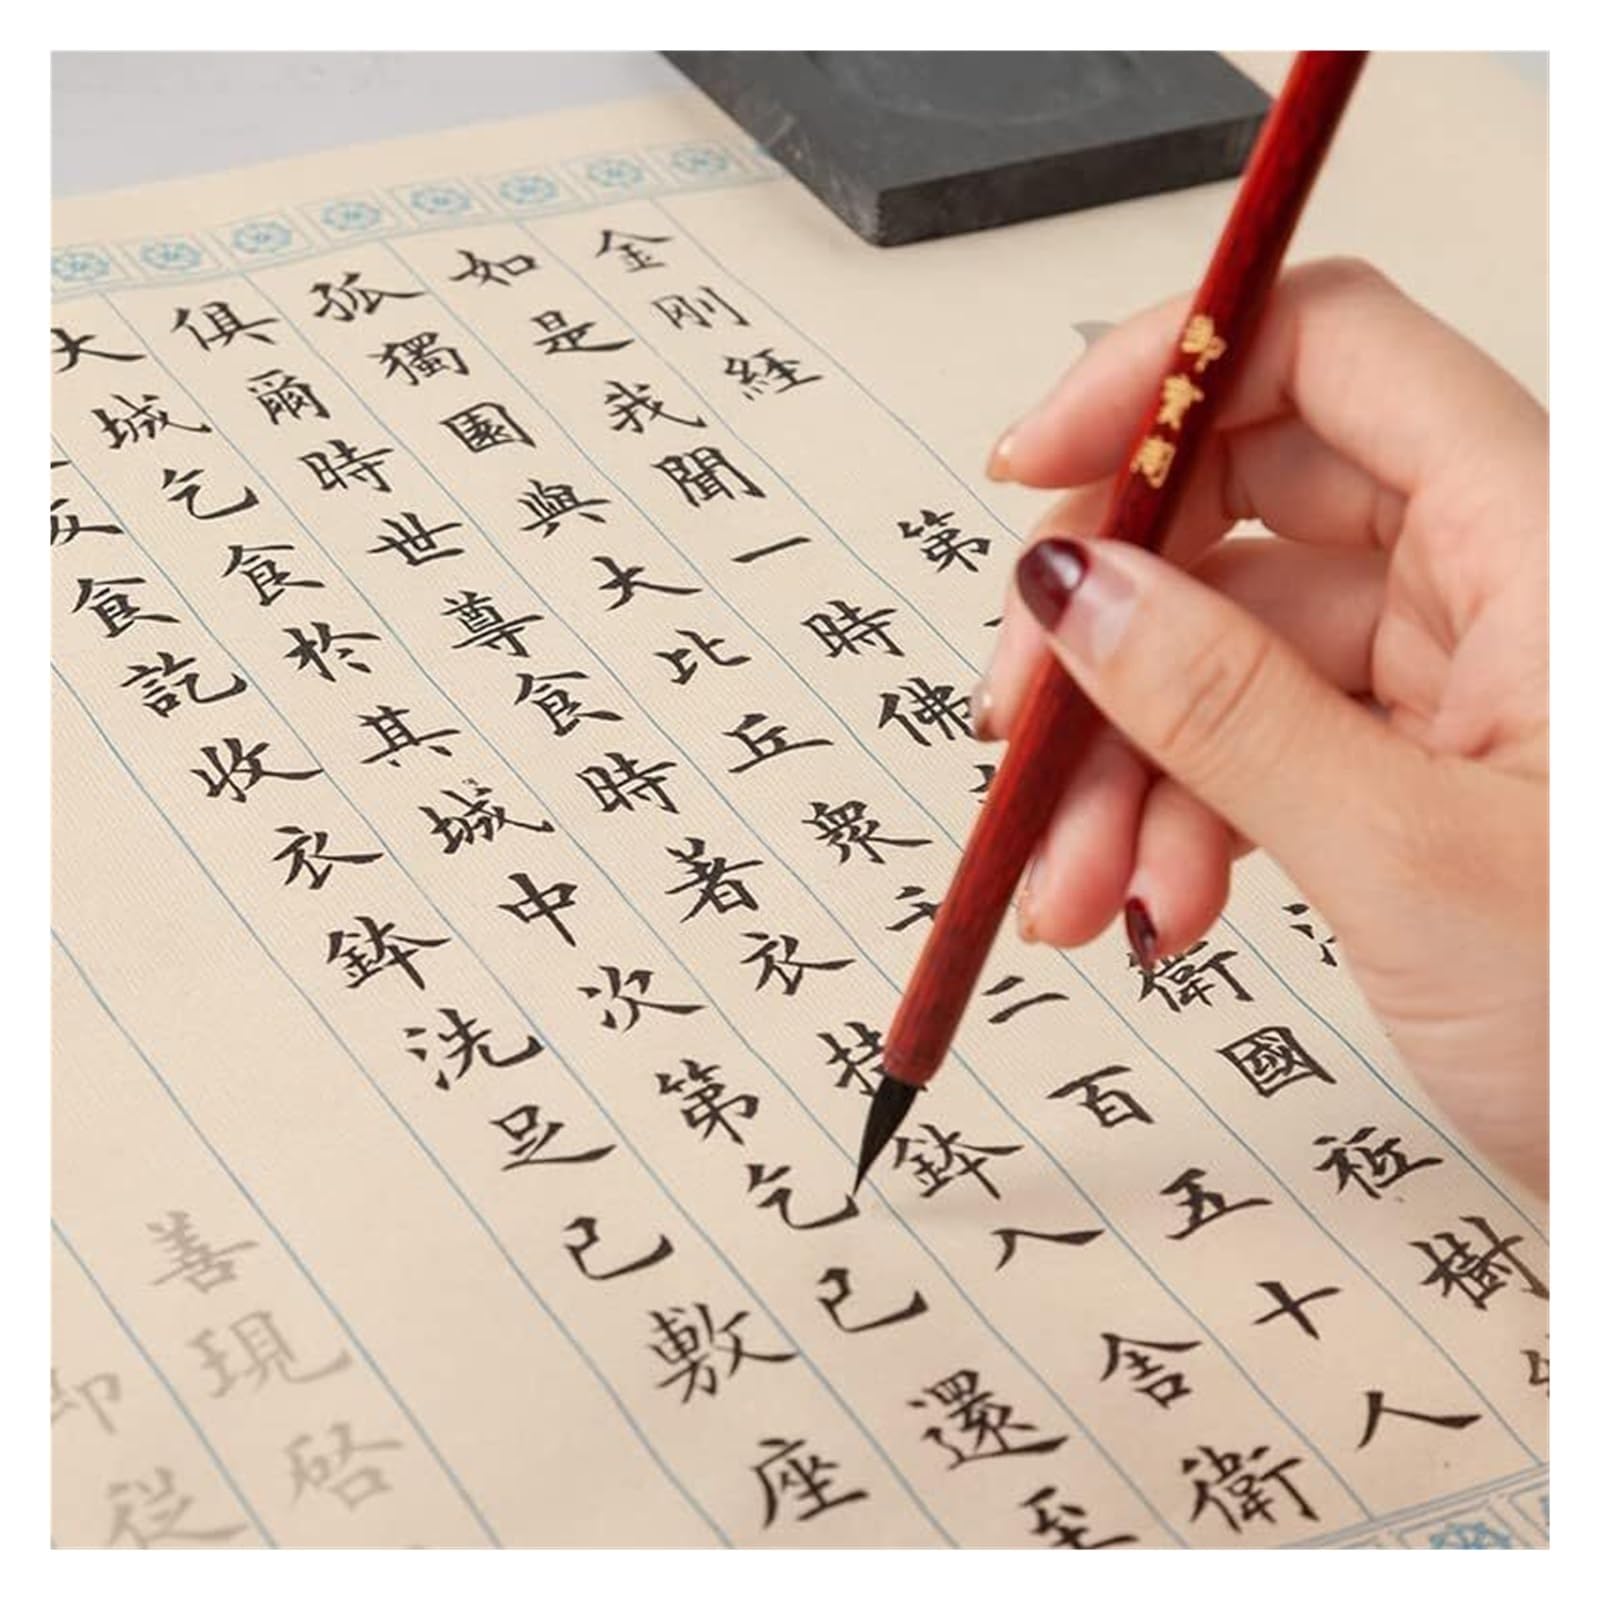 金剛経 第
如是我聞一時佛 衛國祇樹
孤獨園與大比丘衆千二百五十人
俱爾時世尊食時著衣持鉢入舍衛
大城乞食於其城中次第乞已還至
食訖收衣鉢洗足已敷座
善現啓
即從